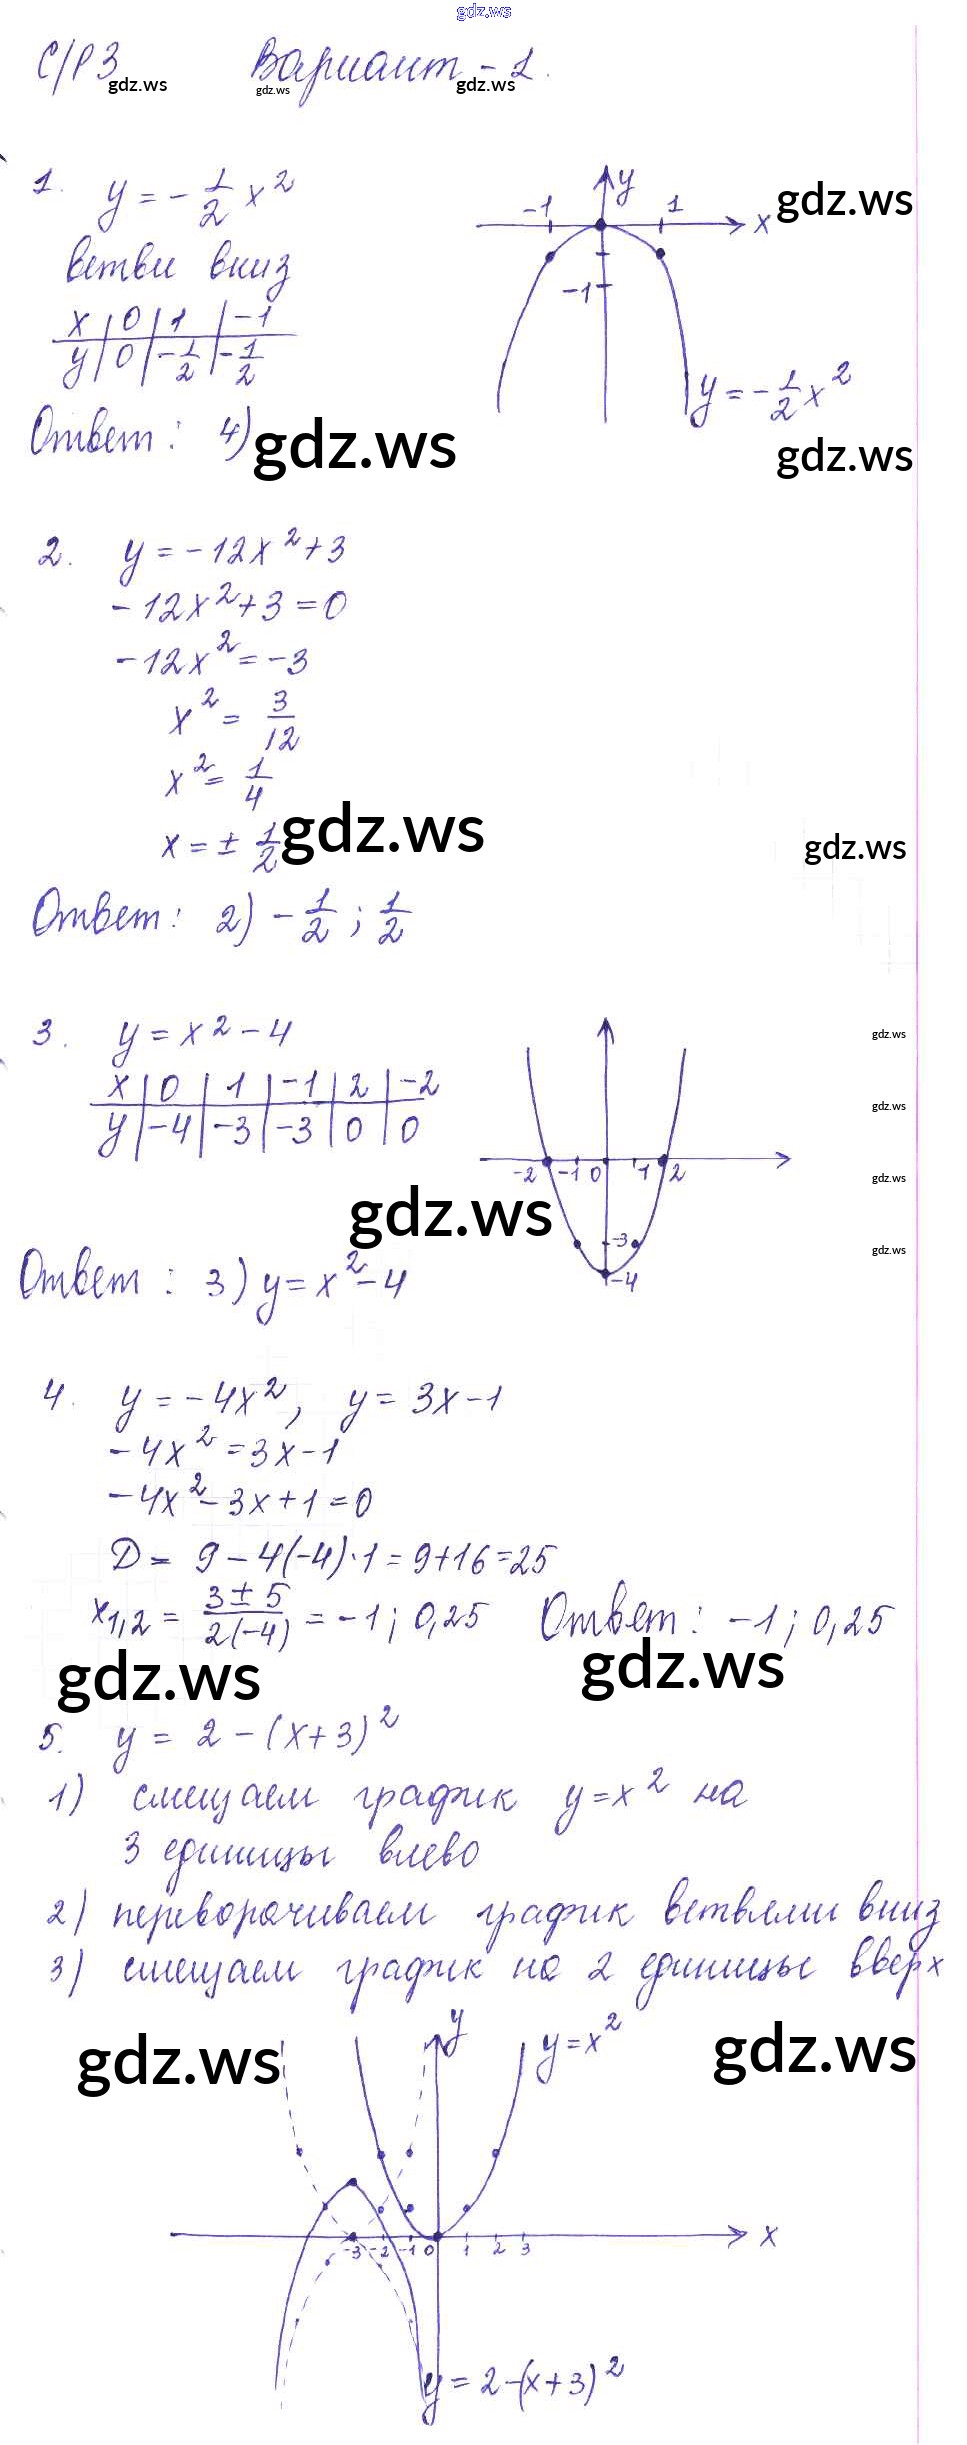 gdz.ws
С/Р 3 Вариант - 1.
gdz.ws gdz.ws gdz.ws
1. y = -1/2 x²
ветви вниз
x | 0 | 1 | -1
y | 0 | -1/2 | -1/2
Ответ: 4)
y
-1 1 x
-1
y = -1/2 x²
gdz.ws
gdz.ws
gdz.ws
2. y = -12x² + 3
-12x² + 3 = 0
-12x² = -3
x² = 3/12
x² = 1/4
x = ± 1/2
gdz.ws
gdz.ws
Ответ: 2) -1/2 ; 1/2
3. y = x² - 4
x | 0 | 1 | -1 | 2 | -2
y | -4 | -3 | -3 | 0 | 0
-2 -1 0 1 2
-3
-4
gdz.ws
gdz.ws
gdz.ws
gdz.ws
gdz.ws
Ответ: 3) y = x² - 4
4. y = -4x², y = 3x - 1
-4x² = 3x - 1
-4x² - 3x + 1 = 0
D = 9 - 4(-4)·1 = 9 + 16 = 25
x1,2 = 3 ± 5 / 2(-4) = -1; 0,25 Ответ: -1; 0,25
gdz.ws gdz.ws
5. y = 2 - (x+3)²
1) смещаем график y = x² на
3 единицы влево
2) переворачиваем график ветвями вниз
3) смещаем график на 2 единицы вверх
gdz.ws gdz.ws
y
y = x²
-3 -2 -1 0 1 2 3 x
y = 2 - (x+3)²